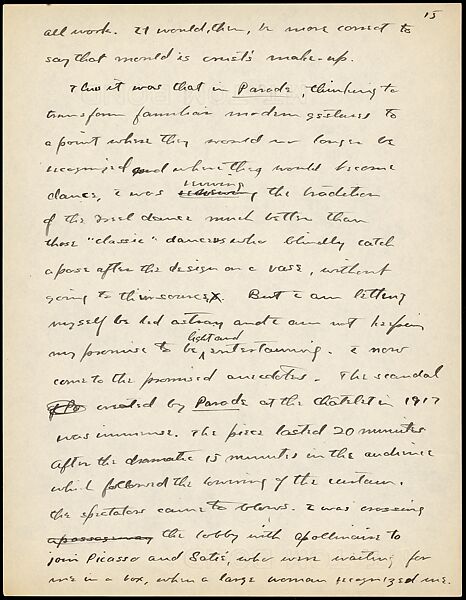 15
all work. It would, then, be more correct to
say that mould is crust's make-up.
Thus it was that in Parade, thinking to
transform familiar modern gestures to
a point where they would no longer be
recognized and where they would become
dance, I was
reviving
the tradition
of the real dance much better than
those "classic" dancers who blindly catch
a pose after the design on a vase, without
going to their sources. But I am letting
myself be led astray and I am not keeping
light and
my promise to be entertaining. I now
come to the promised anecdotes. The scandal
created by Parade at the Chatelet in 1917
was immense. The piece lasted 20 minutes
After the dramatic 15 minutes in the audience
which followed the lowering of the curtain,
the spectators came to blows. I was crossing
the lobby with Apollinaire to
join Picasso and Satie, who were waiting for
me in a box, when a large woman recognized me.